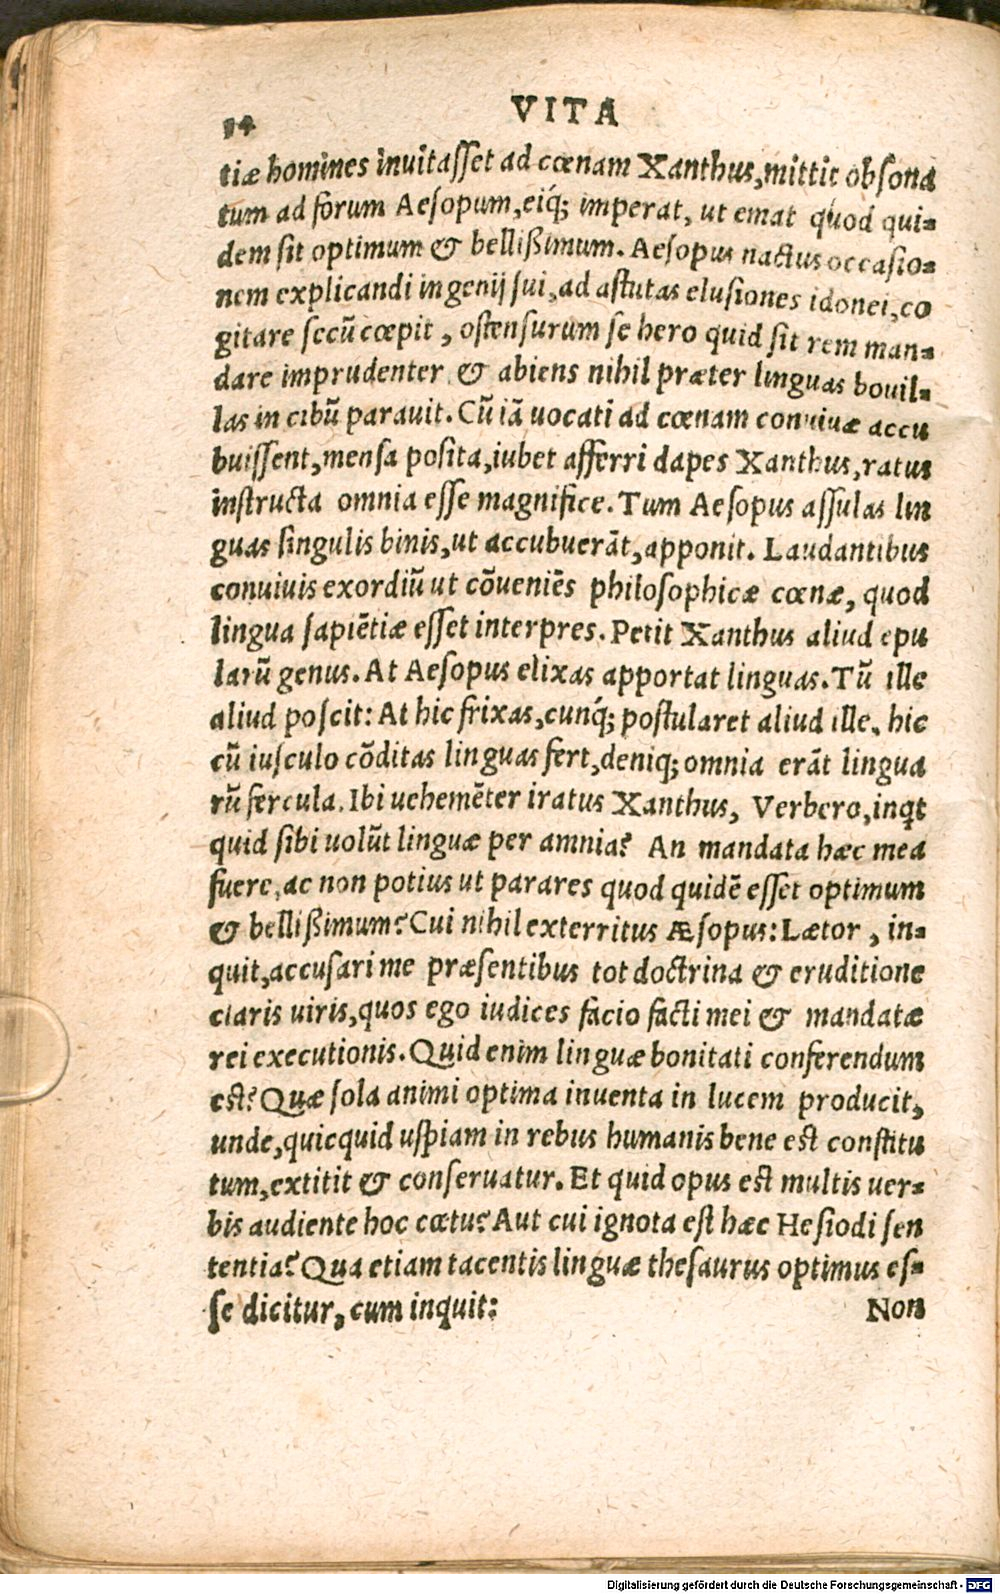 14
VITA
tiæ homines inuitasset ad cœnam Xanthus, mittit obsona
tum ad forum Aesopum, eiq́; imperat, ut emat quod qui-
dem sit optimum & bellißimum. Aesopus nactus occasio-
nem explicandi ingenij sui, ad astutas elusiones idonei, co
gitare secũ cœpit, ostensurum se hero quid sit rem man-
dare imprudenter & abiens nihil præter linguas bouil-
las in cibũ parauit. Cũ iã uocati ad cœnam conuiuæ accu
buissent, mensa posita, iubet afferri dapes Xanthus, ratus
instructa omnia esse magnifice. Tum Aesopus assulas lin
guas singulis binis, ut accubuerãt, apponit. Laudantibus
conuiuis exordiũ ut cõueniẽs philosophicæ cœnæ, quod
lingua sapiẽtiæ esset interpres. Petit Xanthus aliud epu
larũ genus. At Aesopus elixas apportat linguas. Tũ ille
aliud poscit: At hic frixas, cunq́; postularet aliud ille, hic
cũ iusculo cõditas linguas fert, deniq; omnia erãt lingua
rũ fercula. Ibi uehemẽter iratus Xanthus, Verbero, inqt
quid sibi uolũt linguæ per amnia? An mandata hæc mea
fuere, ac non potius ut parares quod quidẽ esset optimum
& bellißimum? Cui nihil exterritus Æsopus: Lætor, in-
quit, accusari me præsentibus tot doctrina & eruditione
claris uiris, quos ego iudices facio facti mei & mandatæ
rei executionis. Quid enim linguæ bonitati conferendum
est? Quæ sola animi optima inuenta in lucem producit,
unde, quicquid uspiam in rebus humanis bene est constitu
tum, extitit & conseruatur. Et quid opus est multis uer-
bis audiente hoc cœtu? Aut cui ignota est hæc Hesiodi sen
tentia? Qua etiam tacentis linguæ thesaurus optimus es-
se dicitur, cum inquit:
Non
Digitalisierung gefördert durch die Deutsche Forschungsgemeinschaft - DFG